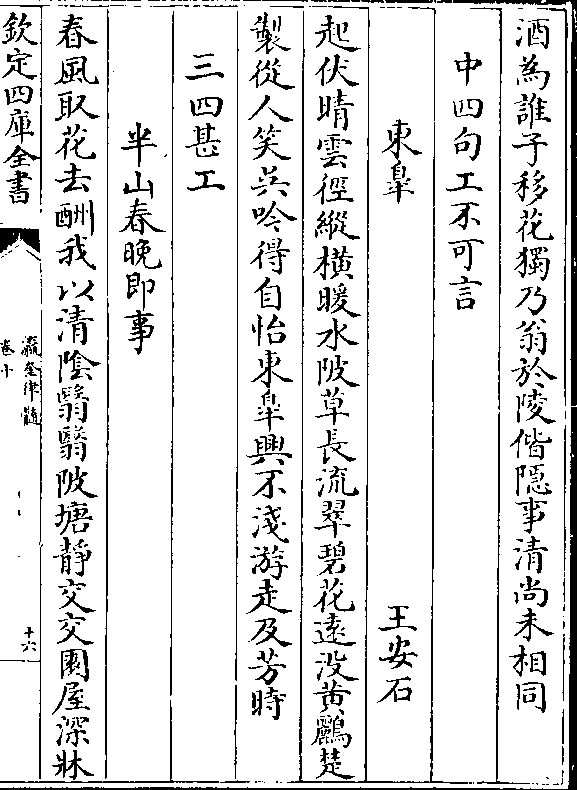 酒為誰子移花獨乃翁於陵偕隠事清尚未相同
中四句工不可言
東臯
王安石
起伏晴雲徑縱横暖水陂草長流翠碧花逺没黄鸝楚
製從人笑吳吟得自怡東臯興不淺游走及芳時
三四甚工
半山春晚即事
春風取花去酬我以清隂翳翳陂塘靜交交園屋深牀
欽定四庫全書
瀛奎律髓
卷十
十六